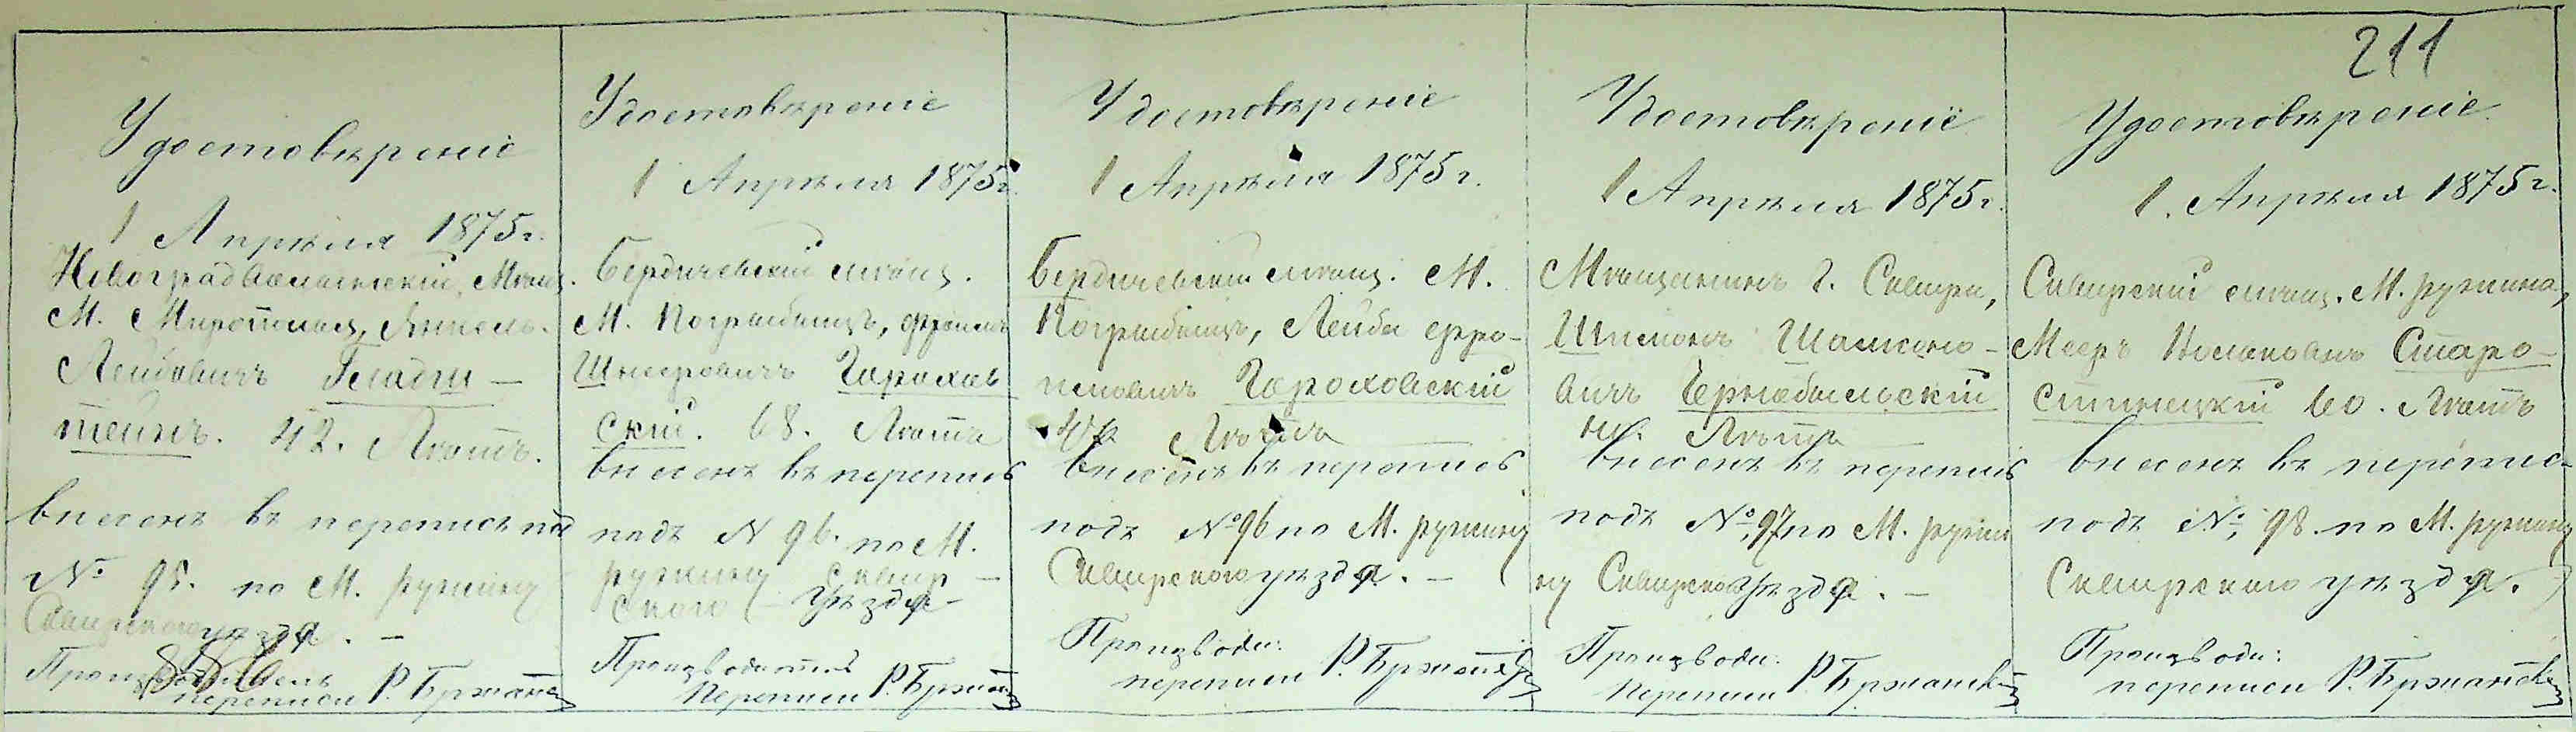 211
Удостовѣреніе
1 Апрѣля 1875 г.
Новоградволынскій Мѣщ.
М. Мирополя,
Лейбовичъ Гладш-
тейнъ. 42. Лѣтъ.
внесенъ въ перепись под
№ 95. по М. ружину
Сквирского уѣзда. —
Производитель
переписи Р. Бржан
Удостовѣреніе
1 Апрѣля 1875 г.
Бердичевскій мѣщ.
М. Погребыщъ, Фроимъ
Шнееровичъ Горохов
скій. 68. Лѣтъ
внесенъ въ перепись
подъ N 96. по М.
ружину Сквир-
ского уѣзда
Производитель
переписи Р. Бржан
Удостовѣреніе
1 Апрѣля 1875 г.
Бердичевскій мѣщ. М.
Погребыщъ, Лейба фро-
имовичъ Гороховскій
Лѣтъ
внесенъ въ перепись
подъ № 96 по М. ружину
Сквирского уѣзда. —
Производи:
переписи Р. Бржан
Удостовѣреніе
1 Апрѣля 1875 г.
Мѣщанинъ г. Сквиры,
Шимонъ Шамсоно-
вичъ Чернобыльскій
Лѣтъ
внесенъ въ перепись
подъ № 97 по М. ружи
ну Сквирского уѣзда. —
Производи:
переписи Р. Бржанск
Удостовѣреніе
1. Апрѣля 1875 г.
Сквирскій мѣщ. М. ружина,
Мееръ Старо-
синецкій 60. Лѣтъ
внесенъ въ перепис
подъ № 98. по М. ружину
Сквирского уѣзда.
Производи:
переписи Р. Бржанск